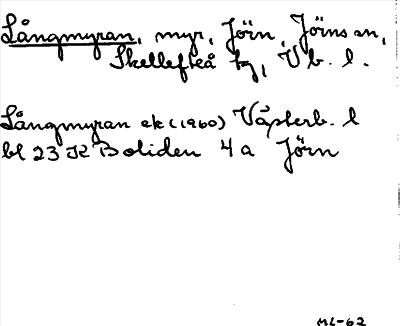 Långmyran, myr, Jörn, Jörns sn,
Skellefteå tg, Vb. l.
Långmyran ek (1960) Västerb. l
bl 23 K Boliden 4 a Jörn
ML-62